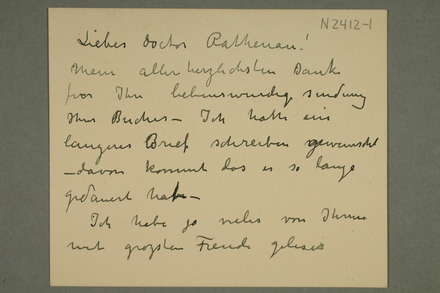 N2412-1
Lieber Doctor Rathenau!
Mein allerherzlichsten Dank
for Ihre liebenswurdige sendung
Ihres Buches – Ich hatte ein
langeres Brief schreiben gewunscht
– davon kommt das es so lange
gedauert hat –
Ich habe ja vieles von Ihnen
mit grozsten Freude gelesen